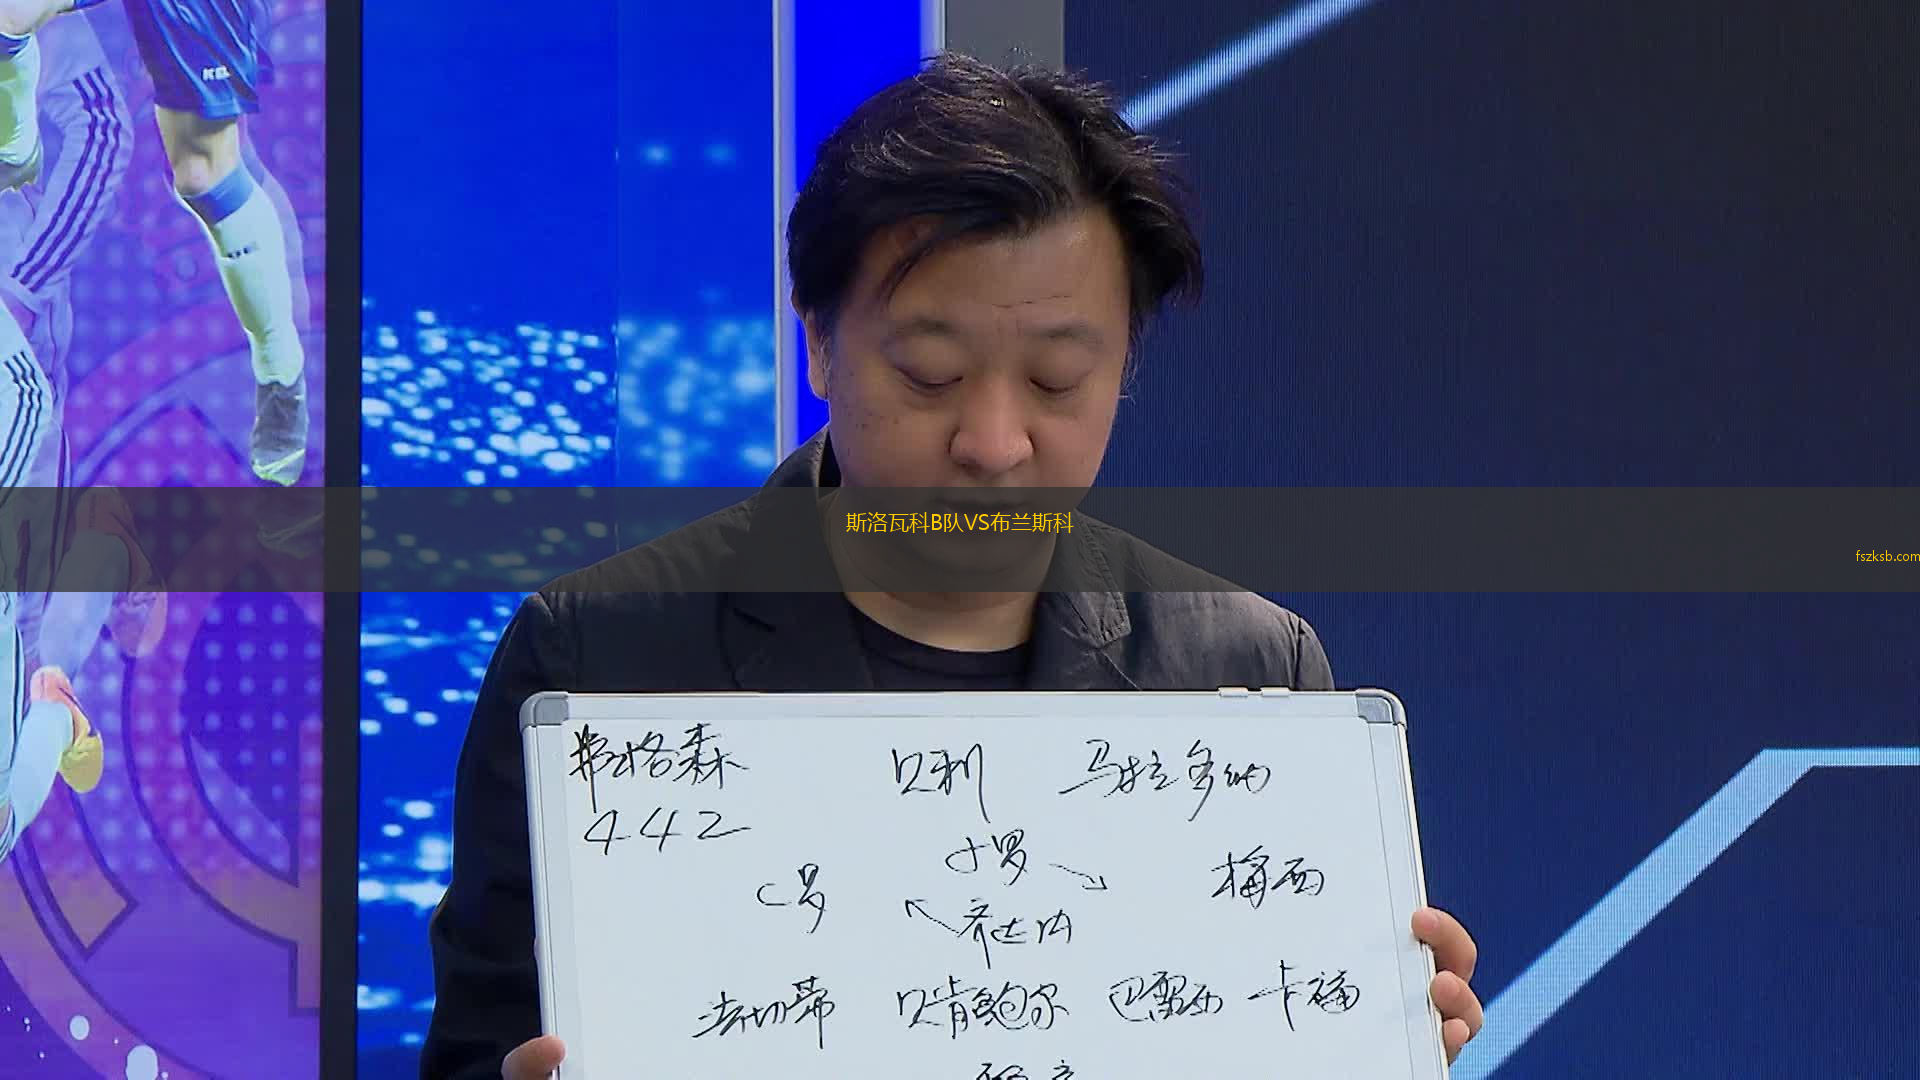 斯洛瓦科B队VS布兰斯科
fszksb.com
弗格森 贝利 马拉多纳
442
小罗
C罗 梅西
齐达内
法切蒂 贝肯鲍尔 巴雷西 卡福